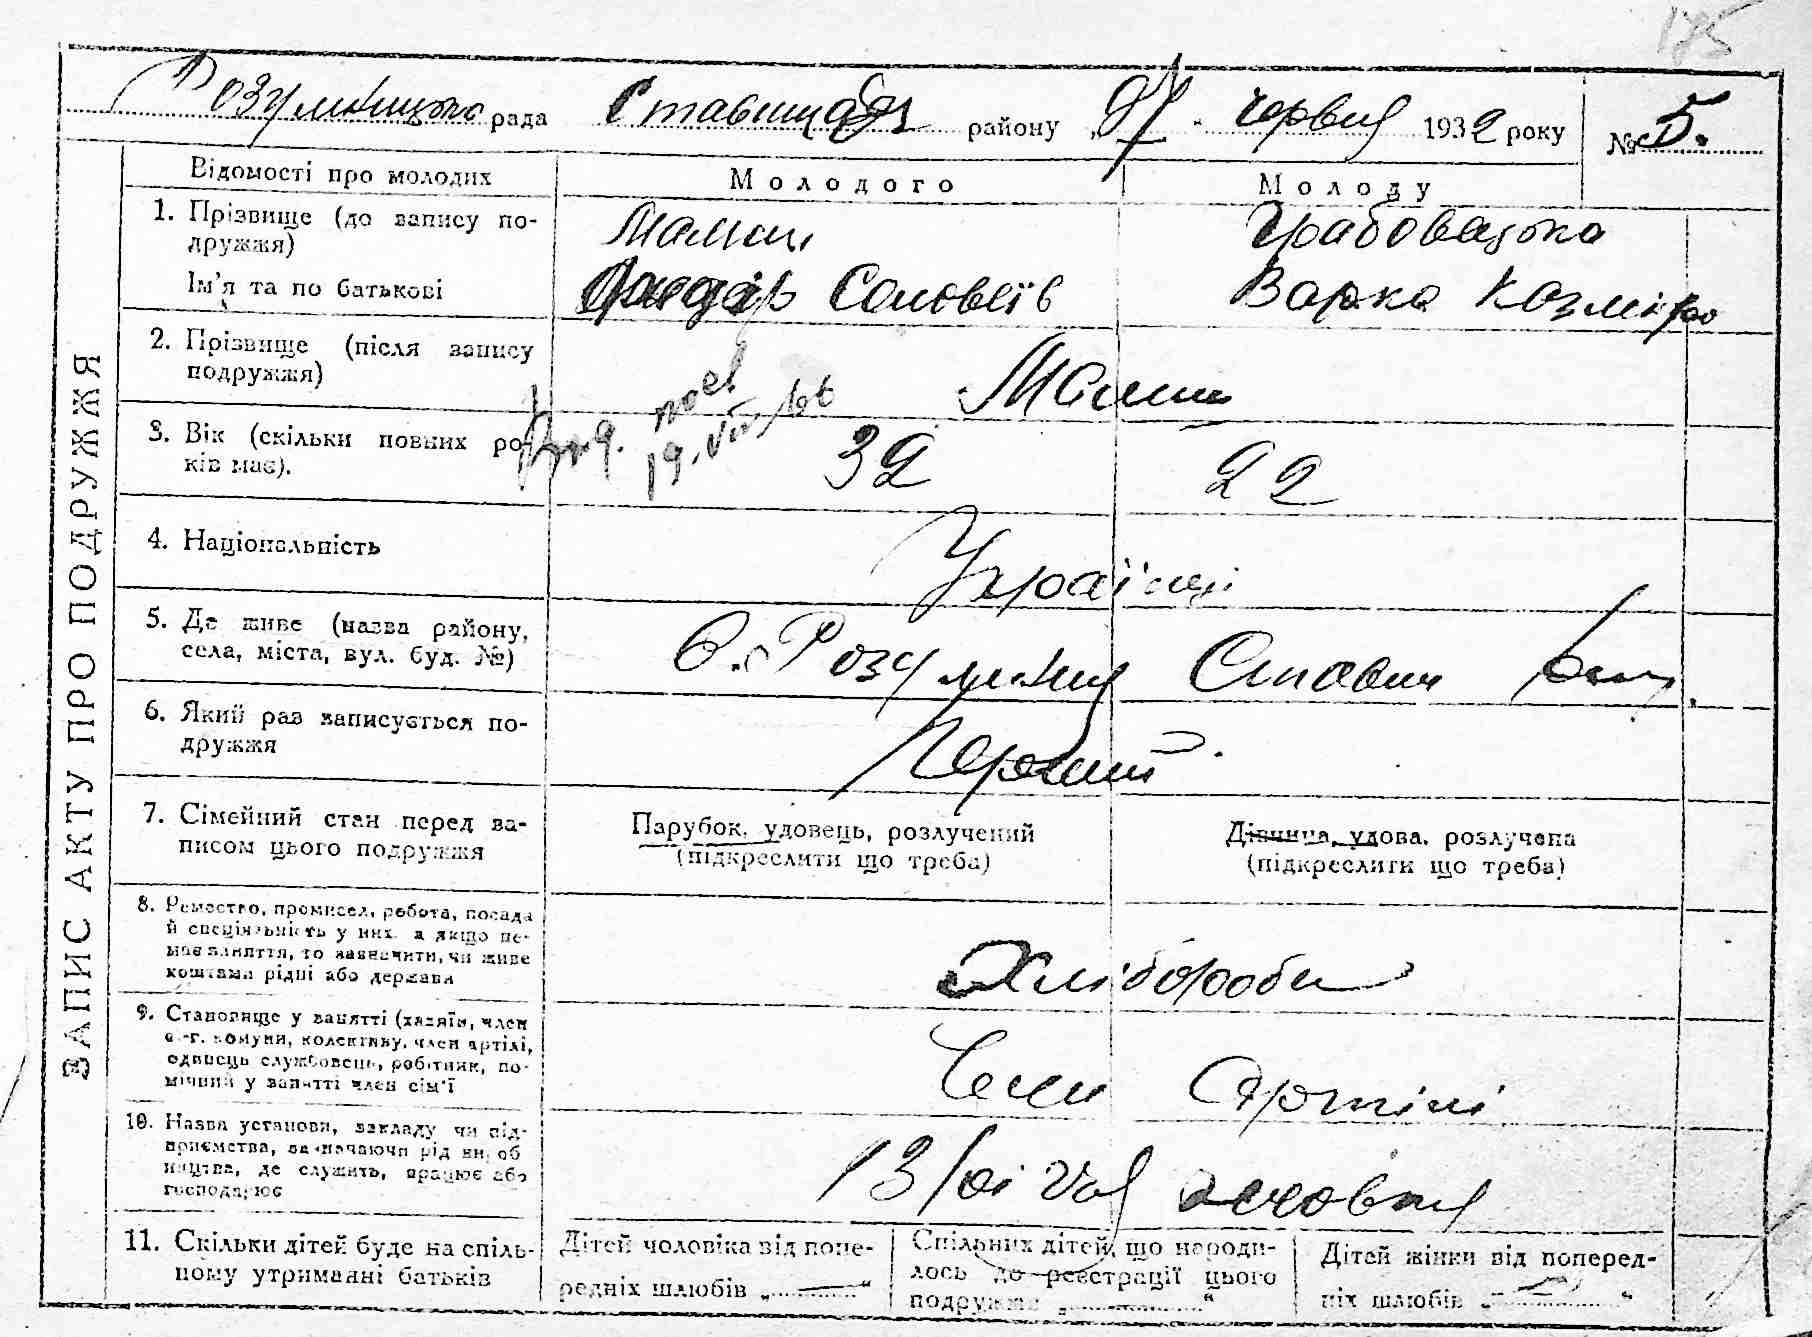 175
Розумницька рада Ставищан району „27“ червня 1932 року № 5.
ЗАПИС АКТУ ПРО ПОДРУЖЖЯ
Відомості про молодих
Молодого
Молоду
1. Прізвище (до запису по-
дружжя)
Грабовецька
Ім'я та по батькові
Соловеїв
Варка
2. Прізвище (після запису
подружжя)
19.VII.66
3. Вік (скільки повних ро-
ків має).
32
22
4. Національність
Українці
5. Де живе (назва району,
села, міста, вул. буд. №)
с. Розумниця Ставищ
6. Який раз записується по-
дружжя
Перший
7. Сімейний стан перед за-
писом цього подружжя
Парубок, удовець, розлучений
(підкреслити що треба)
Дівчина, удова, розлучена
(підкреслити що треба)
8. Ремество, промисел, робота, посада
й спеціяльність у них, а якщо не-
має заняття, то зазначити, чи живе
коштами рідні або держави
Хлібороби
9. Становище у занятті (хазяїн, член
с.-г. комуни, колективу, член артілі,
одинець службовець, робітник, по-
мічний у занятті член сім'ї
Член Артілі
10. Назва установи, закладу чи під-
приємства, зазначаючи рід вироб
ництва, де служить, працює або
господарює
11. Скільки дітей буде на спіль-
ному утриманні батьків
Дітей чоловіка від попе-
редніх шлюбів „—“
Спільних дітей, що народи-
лось до реєстрації цього
подружжя „ “
Дітей жінки від поперед-
ніх шлюбів „—“